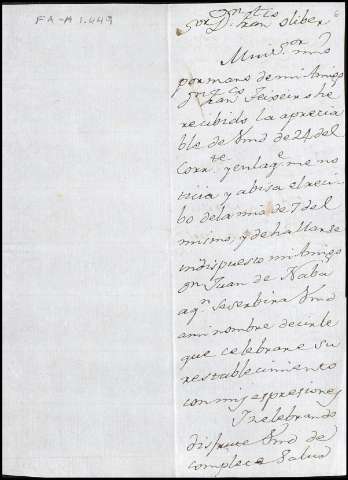 FA-A 1.449
Sor. Dn. Franco. Oliber
Mui Sor. mio
por mano de mi Amigo
Dn. Franco. Teixeiro he
recibido la aprecia
ble de Vmd de 24 del
Corrte. y en la qe. me no
ticia y abisa el reci
bo de la mia de 7 del
mismo, y de hallarse
indispuesto mi Amigo
Dn. Juan de
aqn. se serbira Vmd
a mi nombre decirle
que celebrare su
restablecimiento
con mis espresiones
celebrando
disfrute Vmd de
completa salud